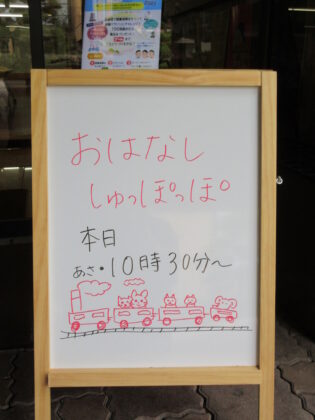 おはなし
しゅっぽっぽ
本日
あさ・10時30分～